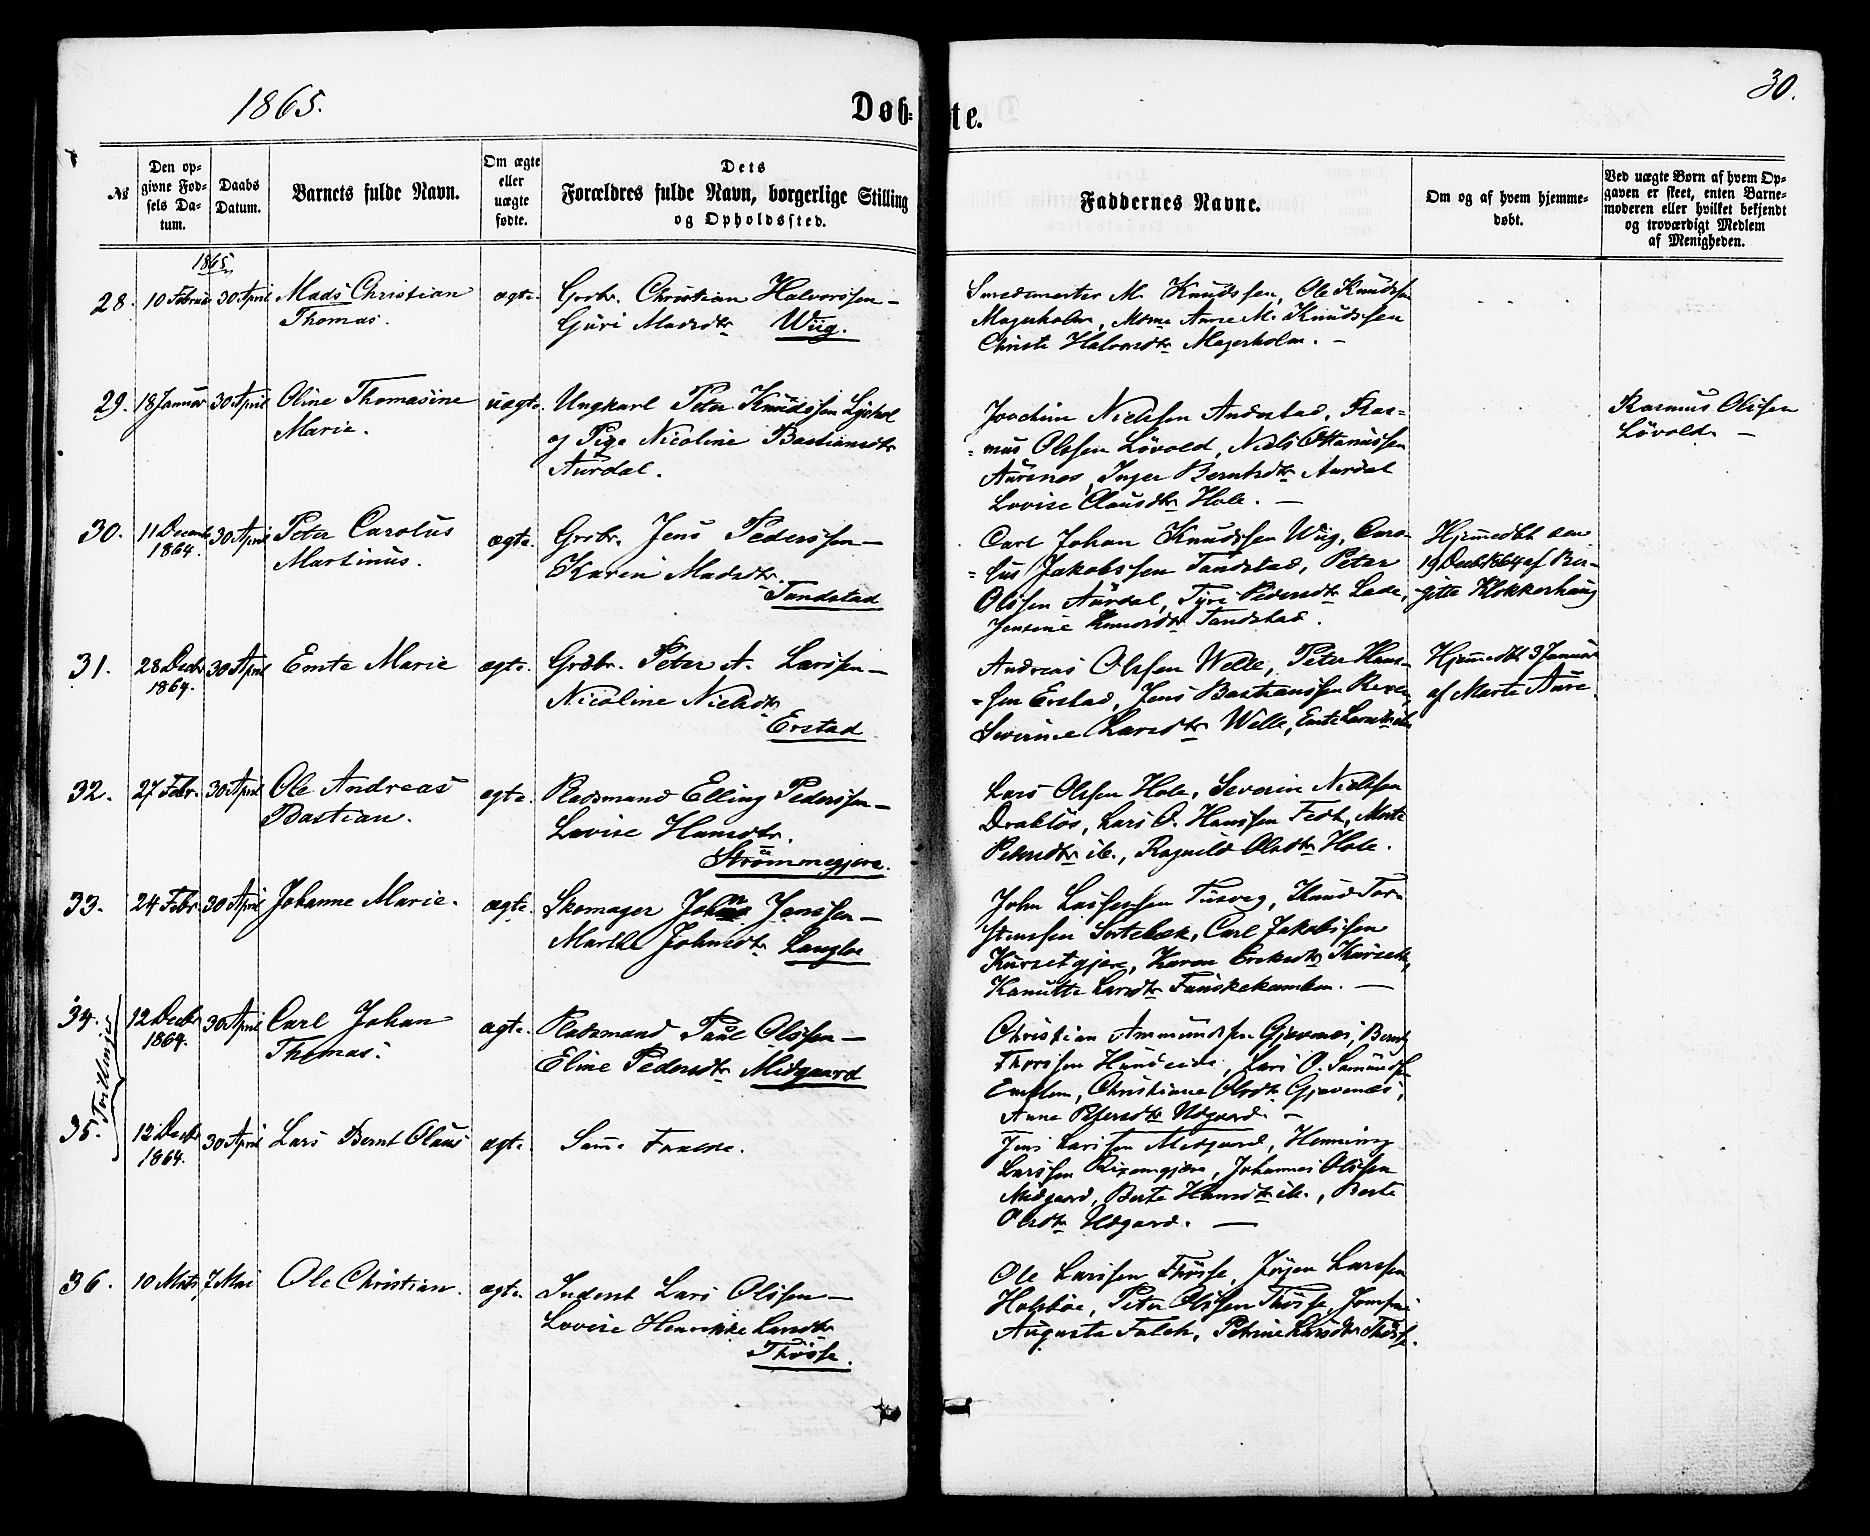 1865.
30.
Døb-
te.
№
Den op-
givne Fød-
sels Da-
tum.
Daabs
Datum.
Barnets fulde Navn.
Om ægte
eller
uægte
fødte.
Dets
Forældres fulde Navn, borgerlige Stilling
og Opholdssted.
Faddernes Navne.
Om og af hvem hjemme-
døbt.
Ved uægte Børn af hvem Op-
gaven er skeet, enten Barne-
moderen eller hvilket bekjendt
og troværdigt Medlem
af Menigheden.
1865
28. 10 Februar 30 April Mads Christian ægte. Grbr. Christian Halvorssen –
Thomas. Guri Madsdtr Wiig.
Smedemester M. Knudssen, Ole Knudssen
Magerholm, Anne M. Knudssen
Christi Halvorsdtr Magerholm. –
29. 18 Januar 30 April Oline Thomasine uægte. Ungkarl Peter Knudssen
Marie. og Pige Nicoline Bastiansdtr
Aurdal.
Joachim Nielssen Andestad, Ras-
mus Olssen Løvold, Niels Ottanussen
Aurenes, Inger Berntsdtr Aurdal
Lovise Clausdtr Hole. –
Rasmus Olssen
Løvold. –
30. 11 Decemb 30 April Peter Carolus ægte. Grbr. Jens Pederssen –
1864. Martinus. Karen Madsdtr.
Tandstad
Carl Johan Knudssen Wiig, Caro-
lus Jakobssen Tandstad, Peter
Olssen Aurdal, Pedersdtr Lade,
Jensine Knudsdtr Tandstad.
Hjemmedbt den
19 Decb 1864 af Ber-
gitte Klokkerhaug
31. 28 Decbr 30 April Emte Marie ægte. Grdbr. Peter A. Larssen –
1864. Nicoline Nielsdtr
Erstad
Andreas Olssen Welle, Peter Hans-
sen Erstad, Jens Bastianssen
Severine Larsdtr Welle, Emte Larsdtr ib.
Hjemmedbt 3 Januar
af Marte Aure.
32. 27 Febr. 30 April Ole Andreas ægte. Pladsmand Elling Pederssen –
Bastian. Lovise Hansdtr.
Strømmegjere.
Lars Olssen Hole, Severin Nielssen
Draktøs, Lars O. Hanssen Tedt, Marte
Pedersdtr ib., Ragnild Olsdtr Hole.
33. 24 Febr. 30 April Johanne Marie. ægte. Skomager John Jenssen –
Marthe Johnsdtr Langloe
John Knud Tor-
stenssen Sortebæk, Carl Jakobssen
Kursetgjere, Karen Eriksdtr Kurseth,
Kanutte Larsdtr –
Tvillinger
34. 12 Decbr 30 April Carl Johan ægte. Pladsmand Paul Olssen –
1864. Thomas. Eline Pedersdtr Midgaard
Christian Ammundssen Gjævenæs, Bernt
Thorssen Hundeide, Lars O.
Emblem, Christiane Olsdtr Gjævenæs,
Anne Pedersdtr Udgaard. –
35. 12 Decbr 30 April Lars Bernt Olaus ægte. Samme Forældre.
1864.
Jens Larssen Midgaard, Henning
Larssen, Johannes Olssen
Midgaard, Berte Hansdtr ib., Berte
Olsdtr Udgaard. –
36. 10 Marts 7 Mai Ole Christian. ægte. Inderst Lars Olssen –
Lovise Henrikke Larsdtr
Thosse.
Ole Larssen Thosse, Jørgen Larssen
Holebøe, Peter Olssen Thosse,
Augusta Falch, Petrine Larsdtr Thosse.